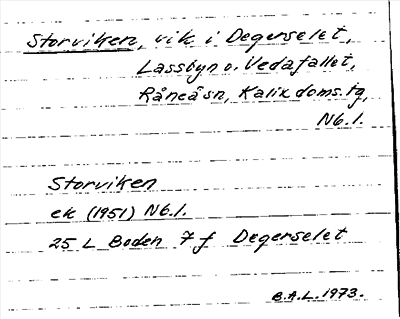 Storviken, vik i Degerselet,
Lassbyn o. Vedafallet,
Råneå sn, Kalix doms. tg,
Nb. l.
Storviken
ek (1951) Nb. l.
25 L Boden 7 f Degerselet
B.A.L. 1973.